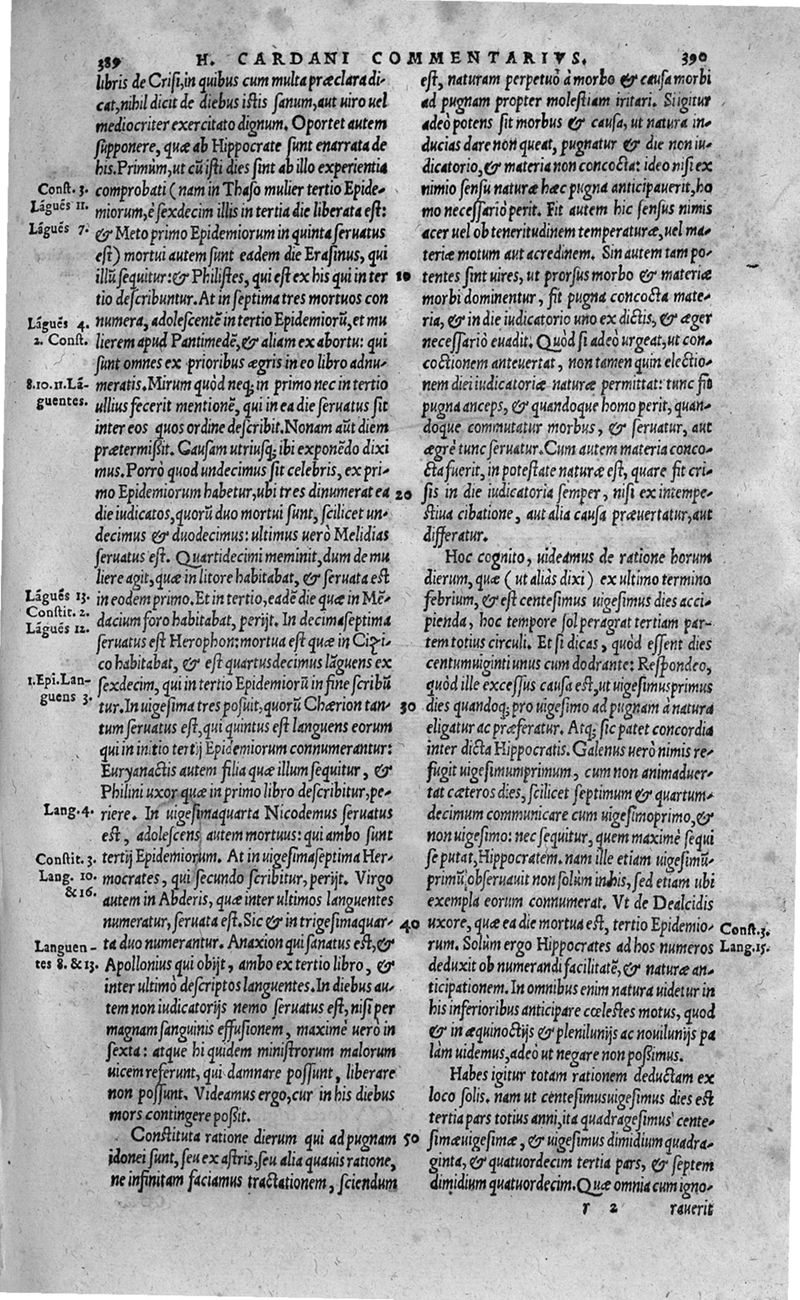 389 H. CARDANI COMMENTARIVS. 390
libris de Crisi, in quibus cum multa præclara di-
cat, nihil dicit de diebus istis sanum, aut uiro uel
mediocriter exercitato dignum. Oportet autem
supponere, quæ ab Hippocrate sunt enarrata de
his. Primùm, ut cũ isti dies sint ab illo experientia
Const. 3. comprobati (nam in Thaso mulier tertio Epide-
Lãguẽs 11. miorum, è sexdecim illis in tertia die liberata est:
Lãguẽs 7. & Meto primo Epidemiorum in quinta seruatus
est) mortui autem sunt eadem die Erasinus, qui
illũ sequitur: & Philistes, qui est ex his qui in ter 10
tio describuntur. At in septima tres mortuos con
Lãguẽs 4. numera, adolescentẽ in tertio Epidemiorũ, et mu
2. Const. lierem apud Pantimedẽ, & aliam ex abortu: qui
sunt omnes ex prioribus ægris in eo libro adnu-
8.10.11. Lã- meratis. Mirum quòd neq; in primo nec in tertio
guentes. ullius fecerit mentionẽ, qui in ea die seruatus sit
inter eos quos ordine describit. Nonam aũt diem
prætermißit. Causam utriusq; ibi exponẽdo dixi
mus. Porrò quod undecimus sit celebris, ex pri-
mo Epidemiorum habetur, ubi tres dinumerat ea 20
die iudicatos, quorũ duo mortui sunt, scilicet un-
decimus & duodecimus: ultimus uerò Melidias
seruatus est. Quartidecimi meminit, dum de mu
liere agit, quæ in litore habitabat, & seruata est
Lãguẽs 13. in eodem primo. Et in tertio, eadẽ die quæ in Mẽ-
Constit. 2. dacium foro habitabat, perijt. In decimaseptima
Lãguẽs 12. seruatus est Herophon: mortua est quæ in Cizi-
co habitabat, & est quartusdecimus lãguens ex
1. Epi. Lan- sexdecim, qui in tertio Epidemiorũ in fine scribũ
guens 3. tur. In uigesima tres posuit, quorũ Chærion tan- 30
tum seruatus est, qui quintus est languens eorum
qui in initio tertij Epidemiorum connumerantur:
Euryanactis autem filia quæ illum sequitur, &
Philini uxor quæ in primo libro describitur, pe-
Lang. 4. riere. In uigesimaquarta Nicodemus seruatus
est, adolescens autem mortuus: qui ambo sunt
Constit. 3. tertij Epidemiorum. At in uigesimaseptima Her-
Lang. 10. mocrates, qui secundo scribitur, perijt. Virgo
& 16. autem in Abderis, quæ inter ultimos languentes
numeratur, seruata est. Sic & in trigesimaquar- 40
Languen- ta duo numerantur. Anaxion qui sanatus est, &
tes 8. & 13. Apollonius qui obijt, ambo ex tertio libro, &
inter ultimò descriptos languentes. In diebus au-
tem non iudicatorijs nemo seruatus est, nisi per
magnam sanguinis effusionem, maximè uerò in
sexta: atque hi quidem ministrorum malorum
uicem referunt, qui damnare possunt, liberare
non possunt. Videamus ergo, cur in his diebus
mors contingere poßit.
Constituta ratione dierum qui ad pugnam 50
idonei sunt, seu ex astris, seu alia quauis ratione,
ne infinitam faciamus tractationem, sciendum
est, naturam perpetuò à morbo & causa morbi
ad pugnam propter molestiam irritari. Si igitur
adeò potens sit morbus & causa, ut natura in-
ducias dare non queat, pugnatur & die non iu-
dicatorio, & materia non concocta: ideo nisi ex
nimio sensu naturæ hæc pugna anticipauerit, ho
mo necessariò perit. Fit autem hic sensus nimis
acer uel ob teneritudinem temperaturæ, uel ma-
teriæ motum aut acredinem. Sin autem tam po-
tentes sint uires, ut prorsus morbo & materiæ
morbi dominentur, fit pugna concocta mate-
ria, & in die iudicatorio uno ex dictis, & æger
necessariò euadit. Quòd si adeò urgeat, ut con-
coctionem anteuertat, non tamen quin electio-
nem diei iudicatoriæ naturæ permittat: tunc fit
pugna anceps, & quandoque homo perit, quan-
doque commutatur morbus, & seruatur, aut
ægrè tunc seruatur. Cum autem materia conco-
cta fuerit, in potestate naturæ est, quare fit cri-
sis in die iudicatoria semper, nisi ex intempe-
stiua cibatione, aut alia causa præuertatur, aut
differatur.
Hoc cognito, uideamus de ratione horum
dierum, quæ (ut aliâs dixi) ex ultimo termino
febrium, & est centesimus uigesimus dies acci-
pienda, hoc tempore sol peragrat tertiam par-
tem totius circuli. Et si dicas, quòd essent dies
centumuiginti unus cum dodrante: Respondeo,
quòd ille excessus causa est, ut uigesimusprimus
dies quandoq; pro uigesimo ad pugnam à natura
eligatur ac præferatur. Atq; sic patet concordia
inter dicta Hippocratis. Galenus uerò nimis re-
fugit uigesimumprimum, cum non animaduer-
tat cæteros dies, scilicet septimum & quartum-
decimum communicare cum uigesimoprimo, &
non uigesimo: nec sequitur, quem maximè sequi
se putat, Hippocratem. nam ille etiam uigesimũ-
primũ obseruauit non solùm in his, sed etiam ubi
exempla eorum connumerat. Vt de Dealcidis
uxore, quæ ea die mortua est, tertio Epidemio- Const. 3.
rum. Solùm ergo Hippocrates ad hos numeros Lang. 15.
deduxit ob numerandi facilitatẽ, & naturæ an-
ticipationem. In omnibus enim natura uidetur in
his inferioribus anticipare cœlestes motus, quod
& in æquinoctijs & plenilunijs ac nouilunijs pa
làm uidemus, adeò ut negare non poßimus.
Habes igitur totam rationem deductam ex
loco solis. nam ut centesimusuigesimus dies est
tertia pars totius anni, ita quadragesimus cente-
simæuigesimæ, & uigesimus dimidium quadra-
ginta, & quatuordecim tertia pars, & septem
dimidium quatuordecim. Quæ omnia cum igno-
r 2 rauerit